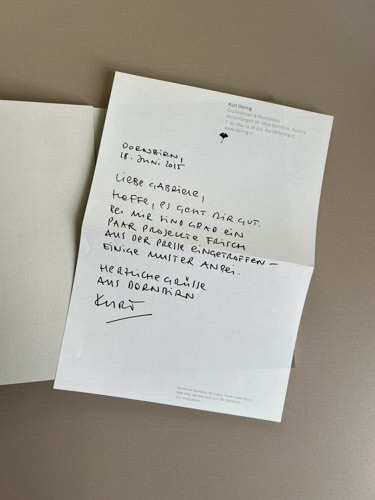 Kurt Dornig
Grafikdesign & Illustration
www.dornig.cc
DORNBIRN,
18. JUNI 2015
LIEBE GABRIELE,
HOFFE, ES GEHT DIR GUT.
BEI MIR SIND GRAD EIN
PAAR PROJEKTE FRISCH
AUS DER PRESSE EINGETROFFEN –
EINIGE MUSTER ANBEI.
HERZLICHE GRÜSSE
AUS DORNBIRN
KURT